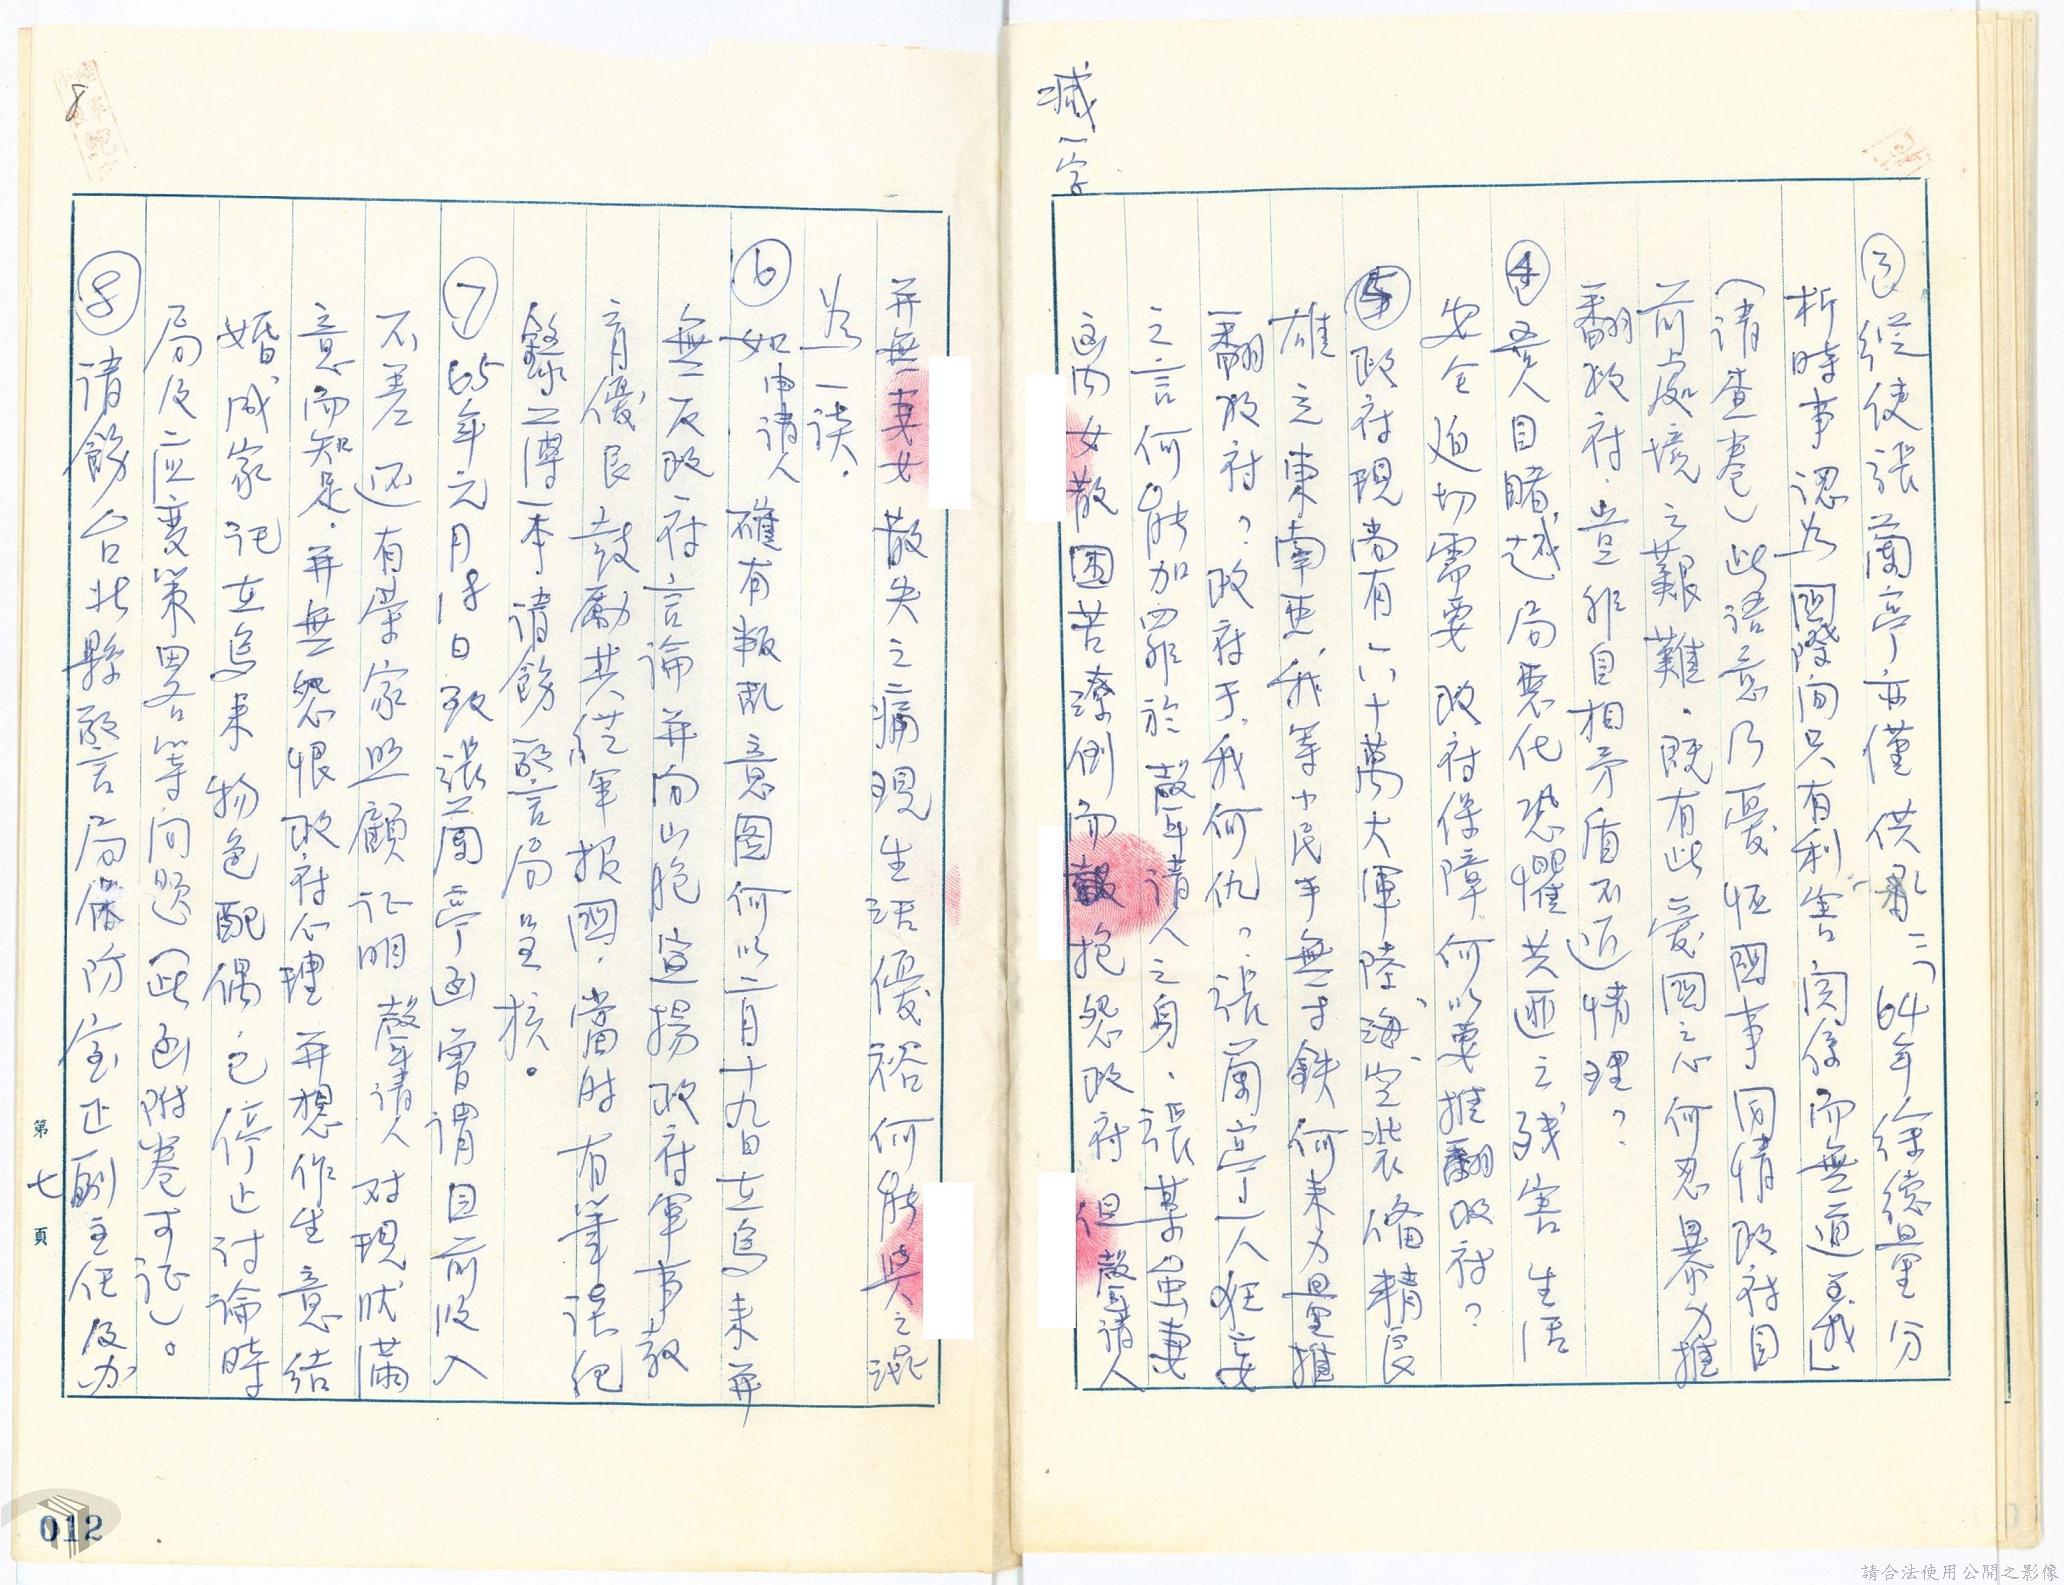 減一字
③縱使張蘭亭亦僅供承三、64年徐德量分
析時事認為「國際間只有利害関係而無道義」
(請查卷)此語意乃憂怀國事同情政府目
前處境之艱難.既有此愛國之心何忍暴力推
翻政府.豈非自相矛盾不近情理?
④吾人目睹越局惡化恐懼共匪之残害生活
安全迫切需要政府保障何以要推翻政府?
⑤政府現尚有六十萬大軍陸、海、空裝備精良
雄立東南亞,我等小民手無寸鉄何來力量推
翻政府?政府于我何仇?張蘭亭一人狂妄
之言何能加罪於聲請人之身.張某因妻
女散困苦潦倒而抱怨政府但聲請人
并無妻女散失之痛現生活優裕何能與之混
為一談.
⑥如申請人確有叛乱意图何以二月十九日在烏來并
無反政府言論并向山胞宣揚政府軍事教
育優良鼓勵其從軍报國.當时有筆误紀
錄二簿一本請飭警局呈核。
⑦65年元月18日致張蘭亭函曾謂目前收入
不差还有榮家照顧证明聲請人对現狀滿
意而知足.并無怨恨政府心理并想作生意結
婚成家记在烏來物色配偶.已停止讨論時
局及应变策畧等问题(此函附卷可证)。
⑧請飭台北縣警局保防室正副主任及办
第七頁
8
012
請合法使用公開之影像